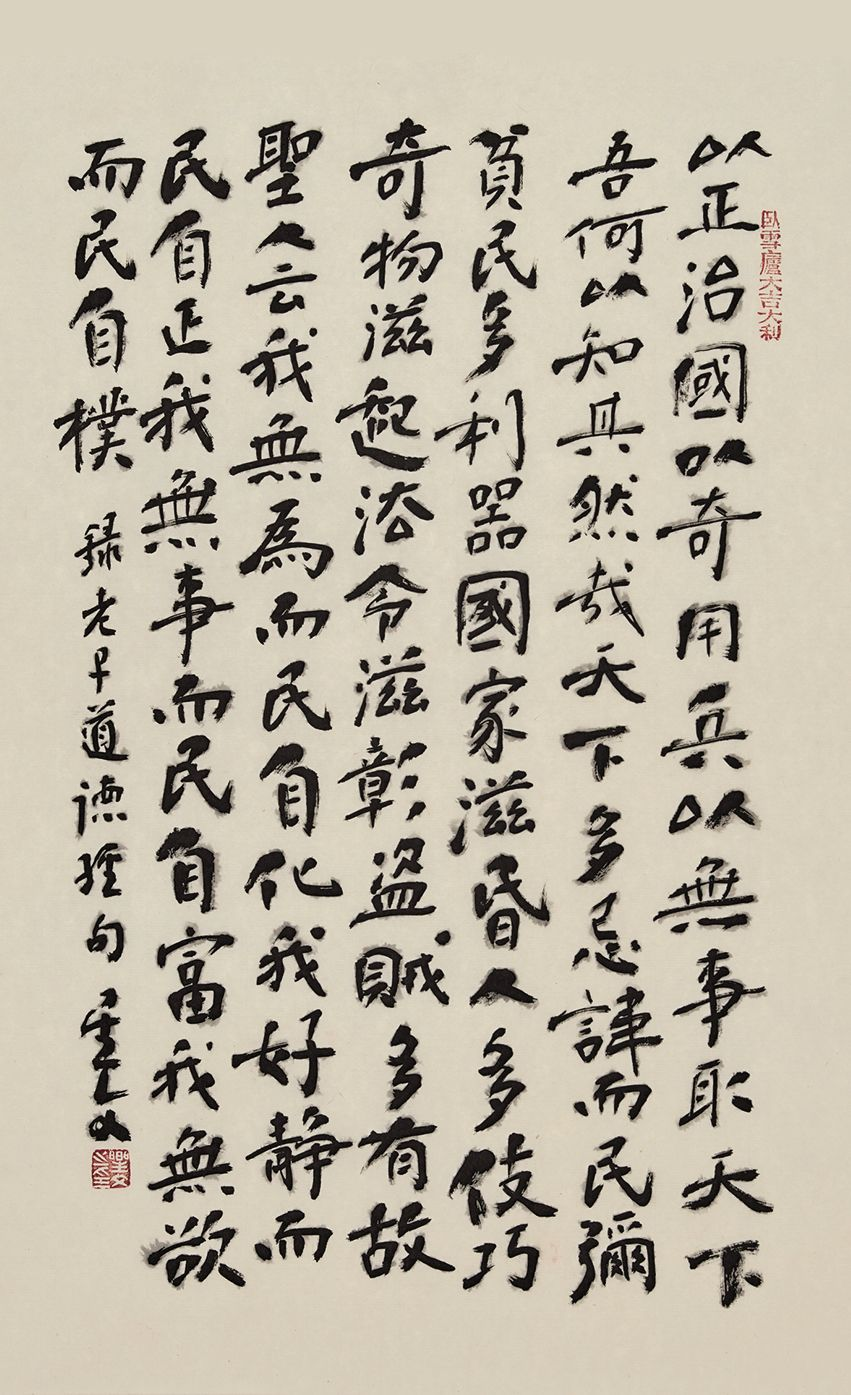 臥雪廬大吉大利
以正治國以奇用兵以無事取天下
吾何以知其然哉天下多忌諱而民彌
貧民多利器國家滋昏人多伎巧
奇物滋起法令滋彰盜賊多有故
聖人云我無為而民自化我好靜而
民自正我無事而民自富我無欲
而民自樸 錄老子道德經句